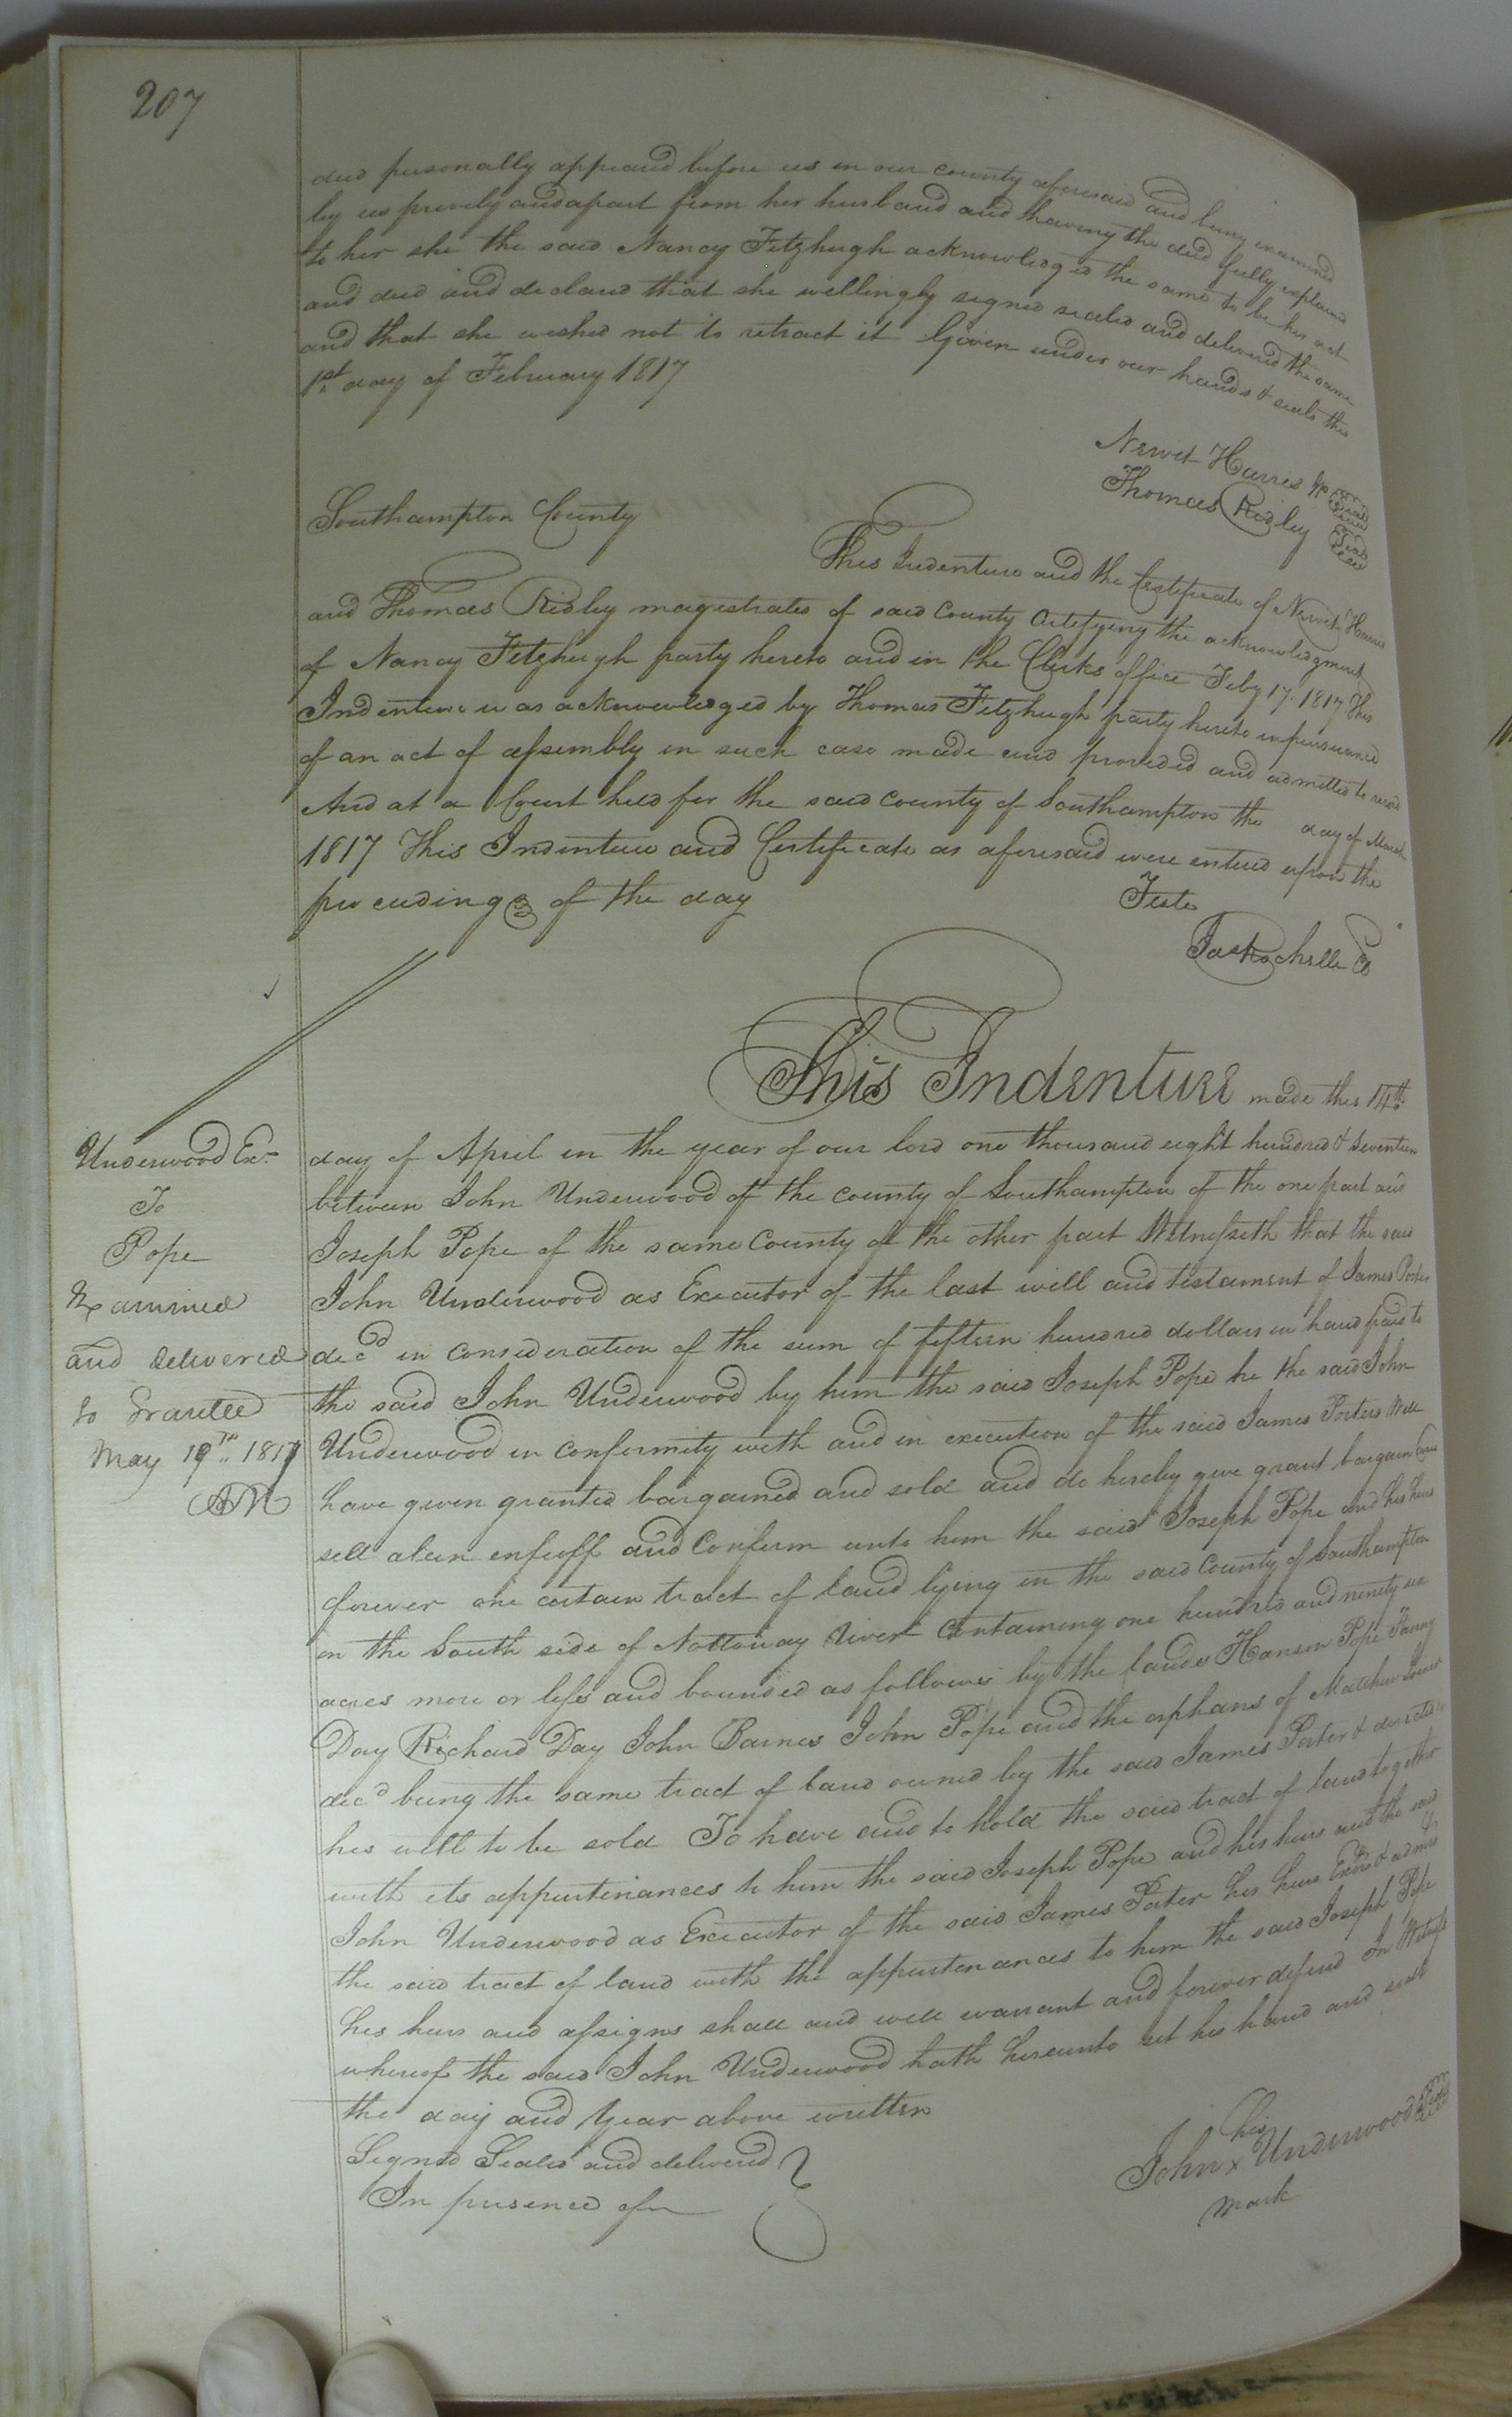 207
deed personally appeared before us in our county aforesaid and being examined
by us privily and apart from her husband and having the deed fully explained
to her she the said Nancy Fitzhugh acknowledged the same to be her act
and deed and declared that she willingly signed sealed and delivered the same
and that she wished not to retract it Given under our hands & seals this
1st day of February 1817
Newit Harris Seal
Thomas Ridley Seal
Southampton County
This Indenture and the Certificate of Newit Harris
and Thomas Ridley magistrates of said County Certifying the acknowledgment
of Nancy Fitzhugh party hereto and in the Clerks office Feby 17. 1817 This
Indenture was acknowledged by Thomas Fitzhugh party hereto in pursuance
of an act of assembly in such case made and provided and admitted to record
And at a Court held for the said County of Southampton the day of March
1817 This Indenture and Certificate as aforesaid were entered upon the
proceedings of the day
Teste
Jas Rochelle Cl
This Indenture made this 14th
Underwood Exr
To
Pope
Examined
and delivered
to Grantee
May 19th 1817
day of April in the year of our lord one thousand eight hundred & Seventeen
between John Underwood of the county of Southampton of the one part and
Joseph Pope of the same County of the other part Witnesseth that the said
John Underwood as Executor of the last will and testament of James Porter
decd in consideration of the sum of fifteen hundred dollars in hand paid to
the said John Underwood by him the said Joseph Pope he the said John
Underwood in conformity with and in execution of the said James Porters Will
have given granted bargained and sold and do hereby give grant bargain and
sell alien enfeoff and Confirm unto him the said Joseph Pope and his heirs
forever one certain tract of land lying in the said County of Southampton
on the South side of Nottoway River Containing one hundred and ninety six
acres more or less and bounded as follows by the lands Hanson Pope Fanny
Day Richard Day John Barnes John Pope and the orphans of Matthew
decd being the same tract of land owned by the said James Porter & directed in
his will to be sold To have and to hold the said tract of land together
with its appurtenances to him the said Joseph Pope and his heirs and the said
John Underwood as Executor of the said James Porter his heirs Exors & admrs
the said tract of land with the appurtenances to him the said Joseph Pope
his heirs and assigns shall and will warrant and forever defend In Witness
whereof the said John Underwood hath hereunto set his hand and seal
the day and year above written
Signed Sealed and delivered
In presence of
his
John x Underwood Seal
mark